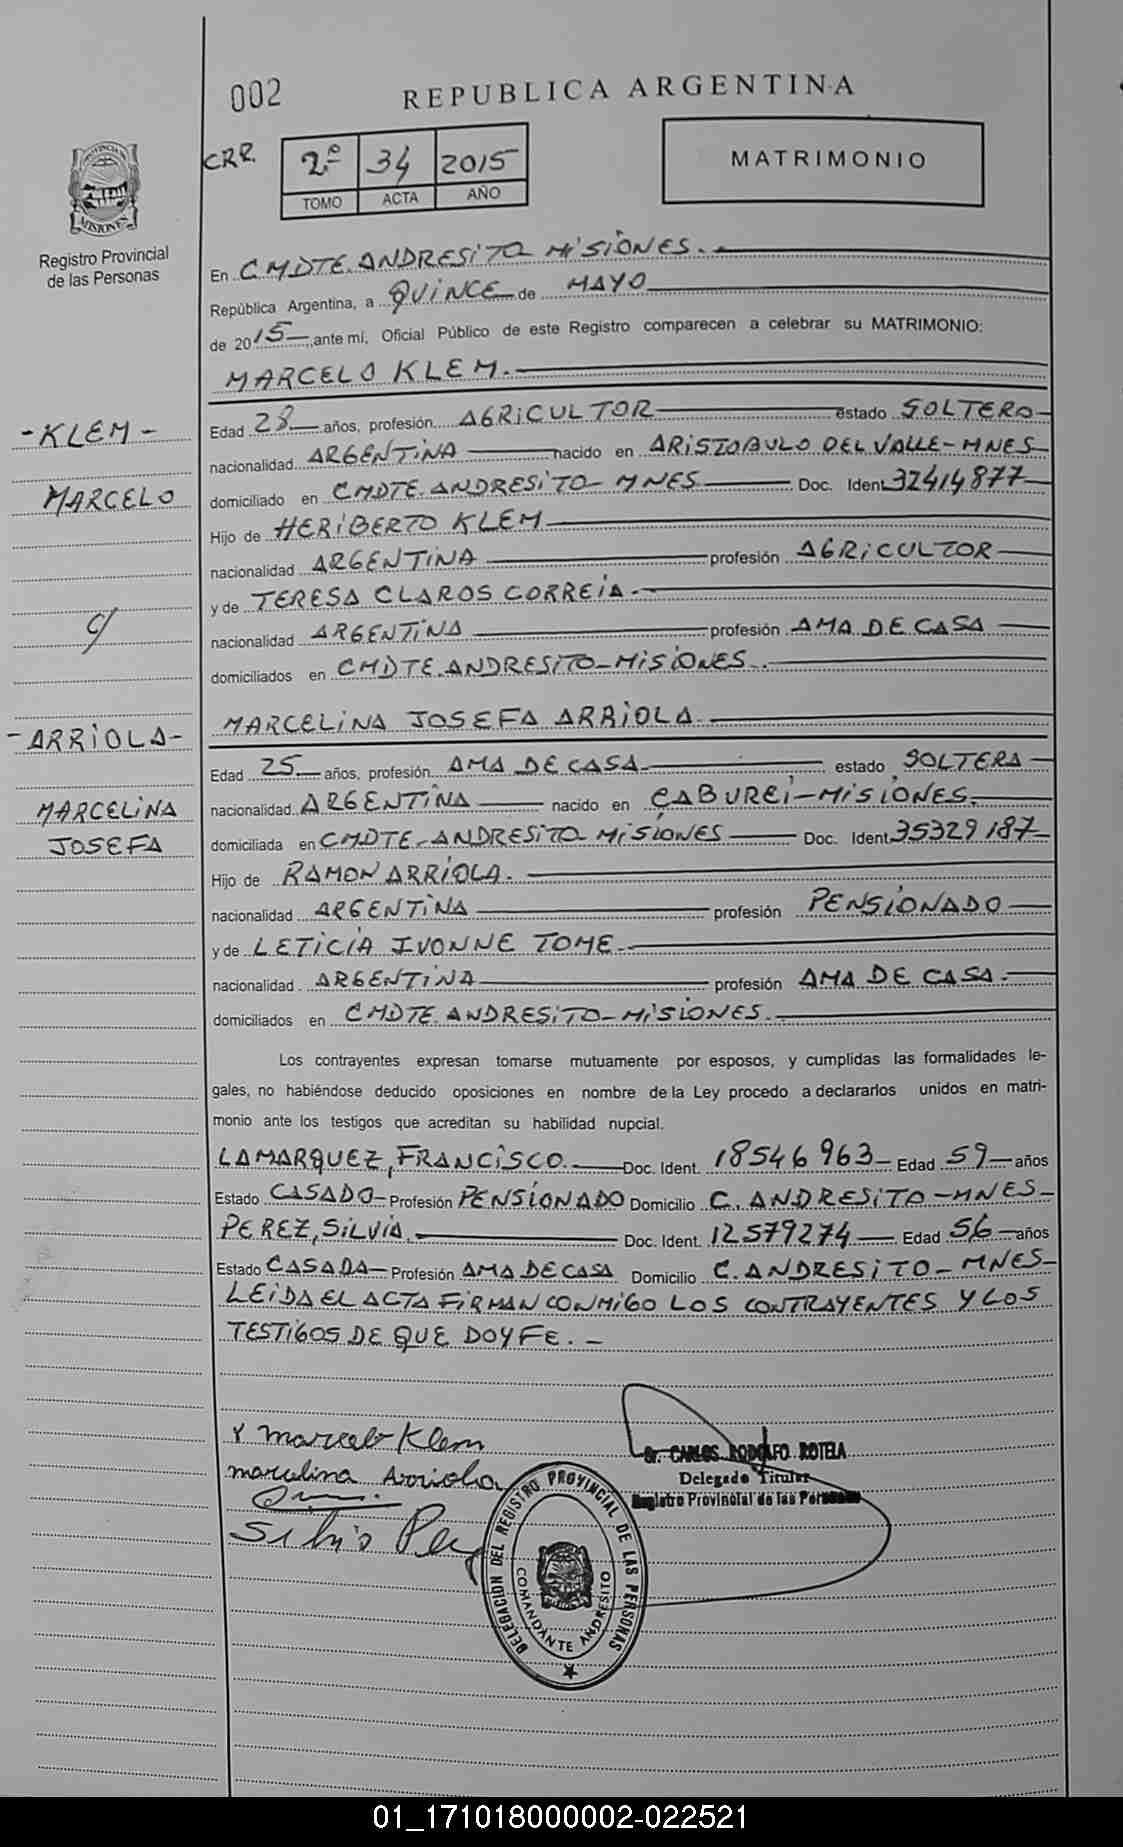 002
REPUBLICA ARGENTINA
CRR.
2º 34 2015
TOMO ACTA AÑO
MATRIMONIO
PROVINCIA DE
MISIONES
Registro Provincial
de las Personas
En CMDTE. ANDRESITO MISIONES.-
República Argentina, a QUINCE de MAYO
de 2015, ante mí, Oficial Público de este Registro comparecen a celebrar su MATRIMONIO:
MARCELO KLEM.
- KLEM -
MARCELO
C/
- ARRIOLA -
MARCELINA
JOSEFA
Edad 28 años, profesión AGRICULTOR estado SOLTERO
nacionalidad ARGENTINA nacido en ARISTOBULO DEL VALLE-MNES
domiciliado en CMDTE. ANDRESITO-MNES Doc. Ident. 32414877
Hijo de HERIBERTO KLEM
nacionalidad ARGENTINA profesión AGRICULTOR
y de TERESA CLAROS CORREIA.
nacionalidad ARGENTINA profesión AMA DE CASA
domiciliados en CMDTE. ANDRESITO-MISIONES.
MARCELINA JOSEFA ARRIOLA.
Edad 25 años, profesión AMA DE CASA estado SOLTERA
nacionalidad ARGENTINA nacido en CABUREI-MISIONES.
domiciliada en CMDTE-ANDRESITO MISIONES Doc. Ident. 35329187
Hijo de RAMON ARRIOLA.
nacionalidad ARGENTINA profesión PENSIONADO
y de LETICIA IVONNE TOME.
nacionalidad ARGENTINA profesión AMA DE CASA.
domiciliados en CMDTE. ANDRESITO-MISIONES.
Los contrayentes expresan tomarse mutuamente por esposos, y cumplidas las formalidades le-
gales, no habiéndose deducido oposiciones en nombre de la Ley procedo a declararlos unidos en matri-
monio ante los testigos que acreditan su habilidad nupcial.
LAMARQUEZ, FRANCISCO. Doc. Ident. 18546963 Edad 59 años
Estado CASADO Profesión PENSIONADO Domicilio C. ANDRESITO-MNES-
PEREZ, SILVIA. Doc. Ident. 12579274 Edad 56 años
Estado CASADA Profesión AMA DE CASA Domicilio C. ANDRESITO-MNES-
LEIDA EL ACTA FIRMAN CONMIGO LOS CONTRAYENTES Y LOS
TESTIGOS DE QUE DOY FE.-
x Marcelo Klem
marcelina Arriola
Silvia Pe
Dr. CARLOS RODOLFO ROTELA
Delegado Titular
Registro Provincial de las Personas
DELEGACION DEL REGISTRO PROVINCIAL DE LAS PERSONAS
COMANDANTE ANDRESITO
01_171018000002-022521